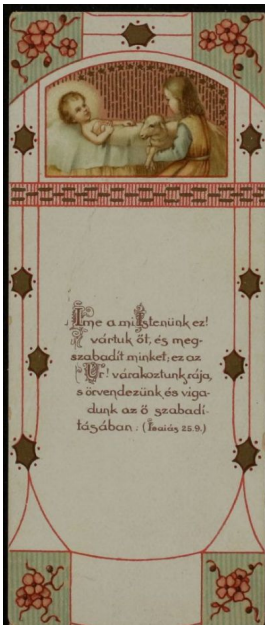 Íme a mi Istenünk ez!
vártuk őt, és meg-
szabadít minket; ez az
Úr! várakoztunk rája,
s örvendezünk és viga-
dunk az ő szabadí-
tásában. (Isaiás 25.9.)